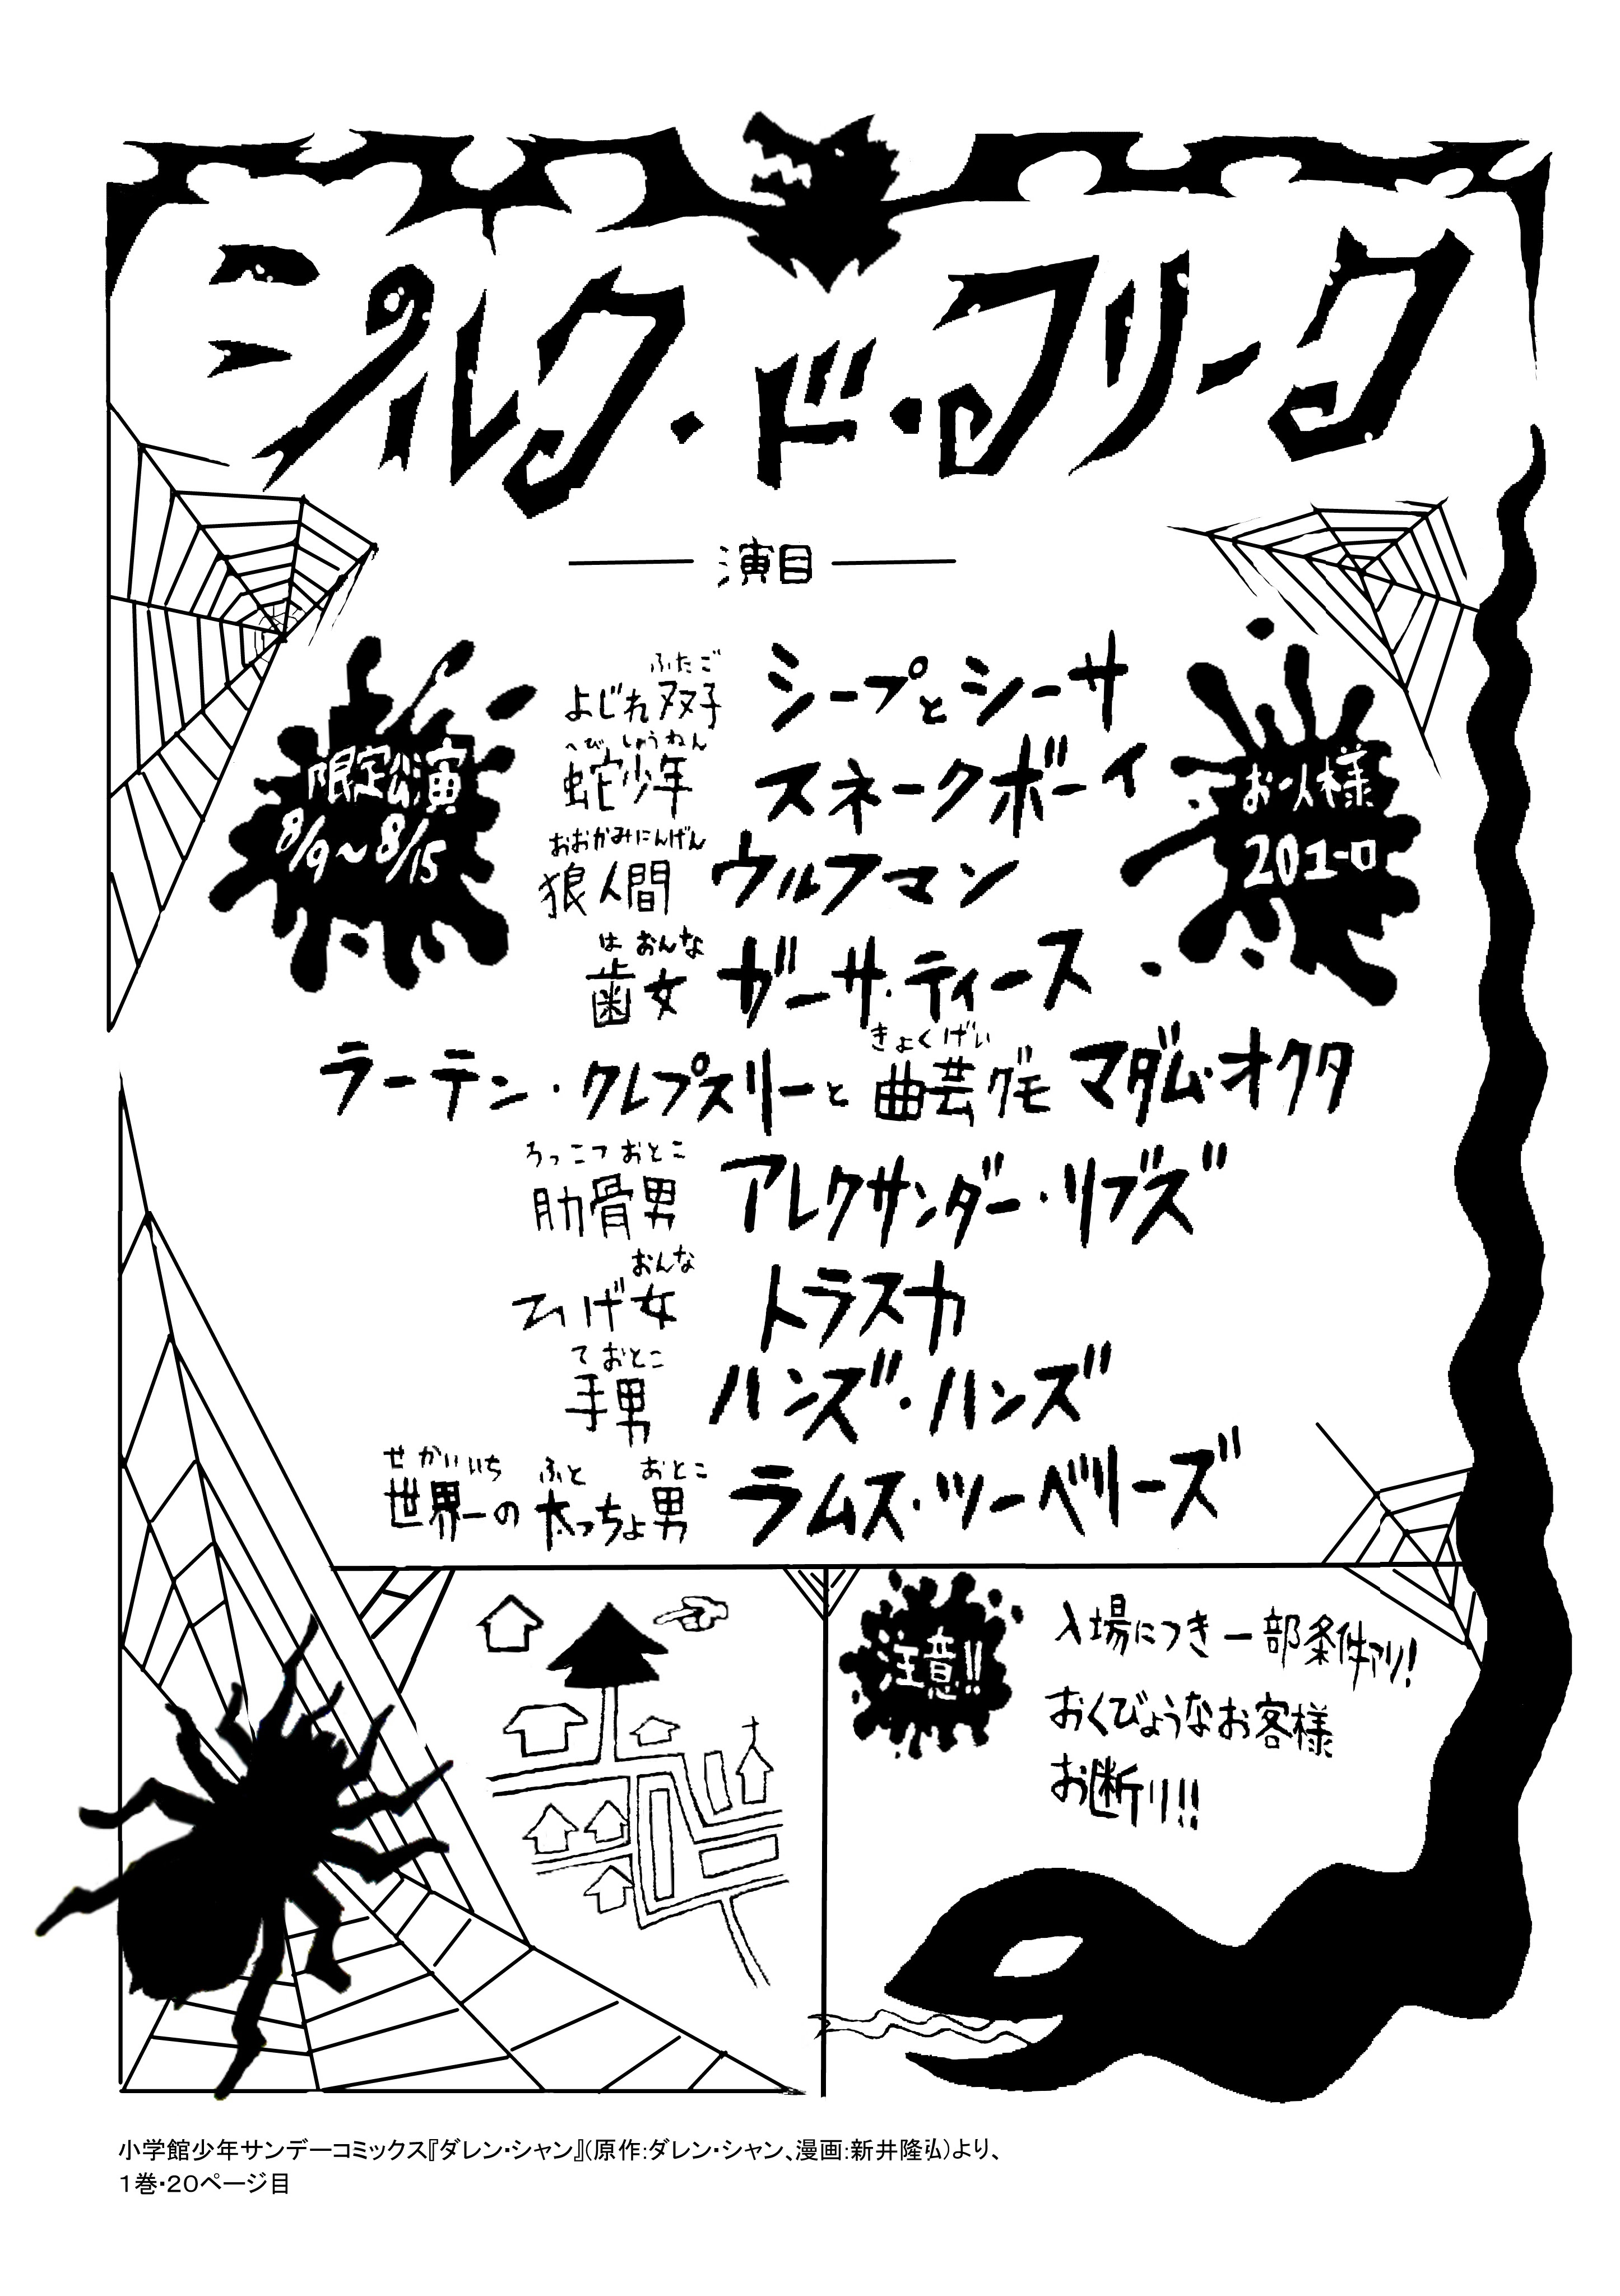 シルク・ド・フリーク
演目
ふたご
よじれ双子 シープとシーサ
へびしょうねん
蛇少年 スネークボーイ
おおかみにんげん
狼人間 ウルフマン
は おんな
歯女 ガーサ・ティース
きょくげい
ラーテン・クレプスリーと曲芸グモ マダム・オクタ
ろっこつ おとこ
肋骨男 アレクサンダー・リブズ
おんな
ひげ女 トラスカ
て おとこ
手男 ハンズ・ハンズ
せかいいち ふと おとこ
世界一の太っちょ男 ラムス・ツーベリーズ
限定公演
8/9～8/15
お一人様
20ユーロ
注意!!
入場につき一部条件アリ!
おくびょうなお客様
お断り!!
小学館少年サンデーコミックス『ダレン・シャン』(原作:ダレン・シャン、漫画:新井隆弘)より、
1巻・20ページ目